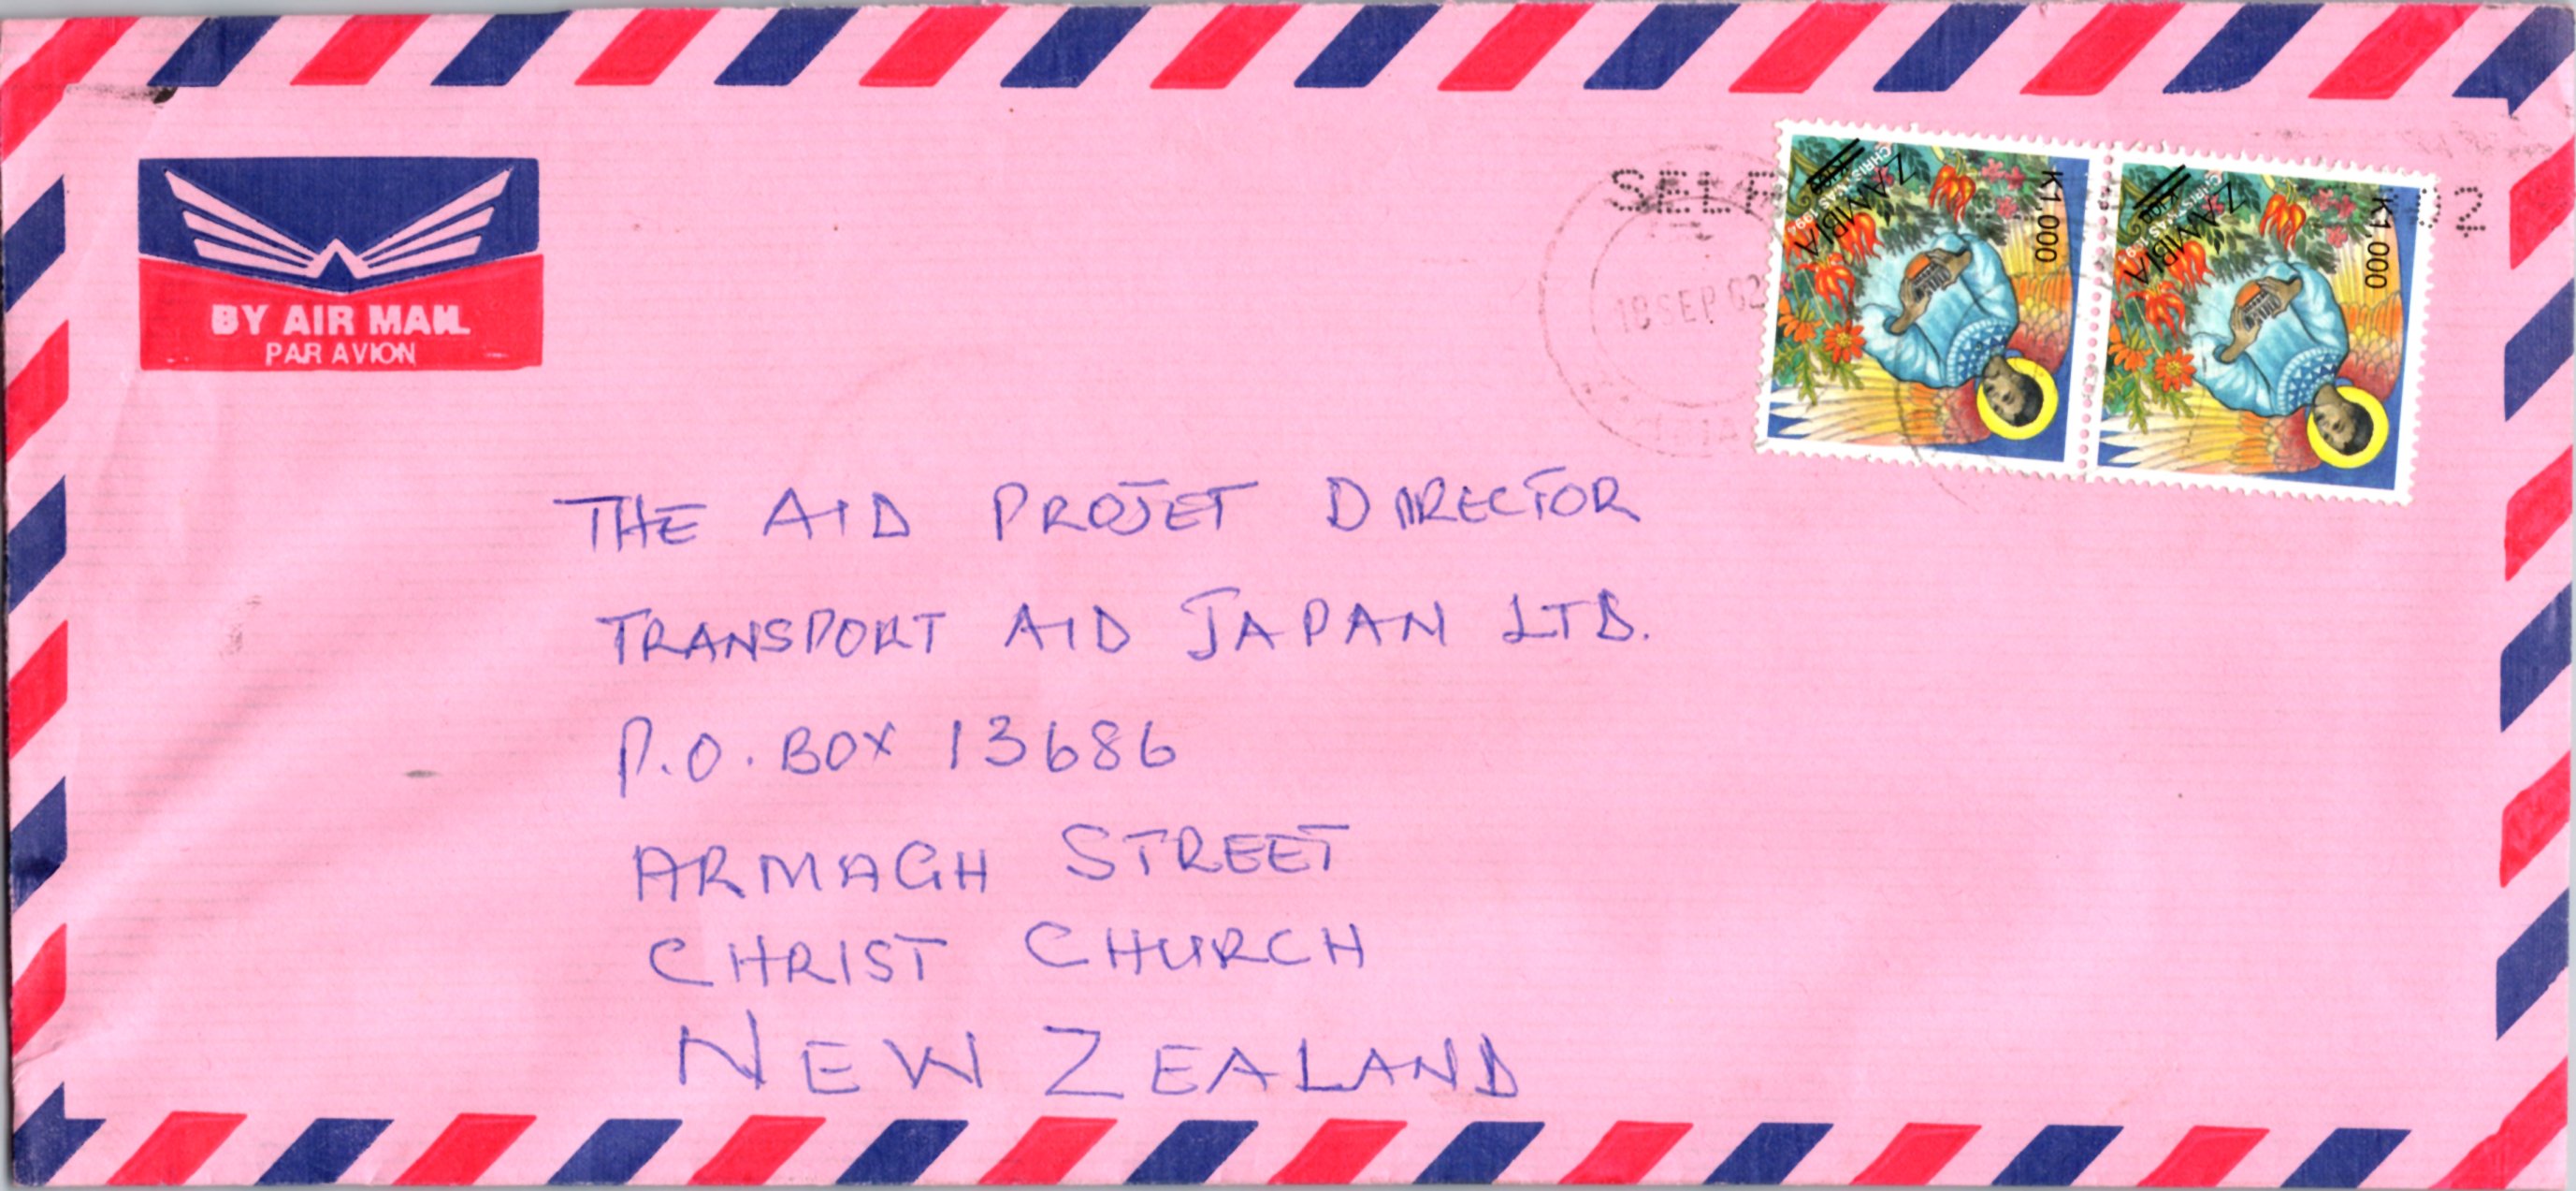 BY AIR MAIL
PAR AVION
SELF
02
18 SEP 02
K1,000
ZAMBIA
CHRISTMAS 1994
K1,000
ZAMBIA
CHRISTMAS 1994
THE AID PROJET DIRECTOR
TRANSPORT AID JAPAN LTD.
P.O. BOX 13686
ARMAGH STREET
CHRIST CHURCH
NEW ZEALAND